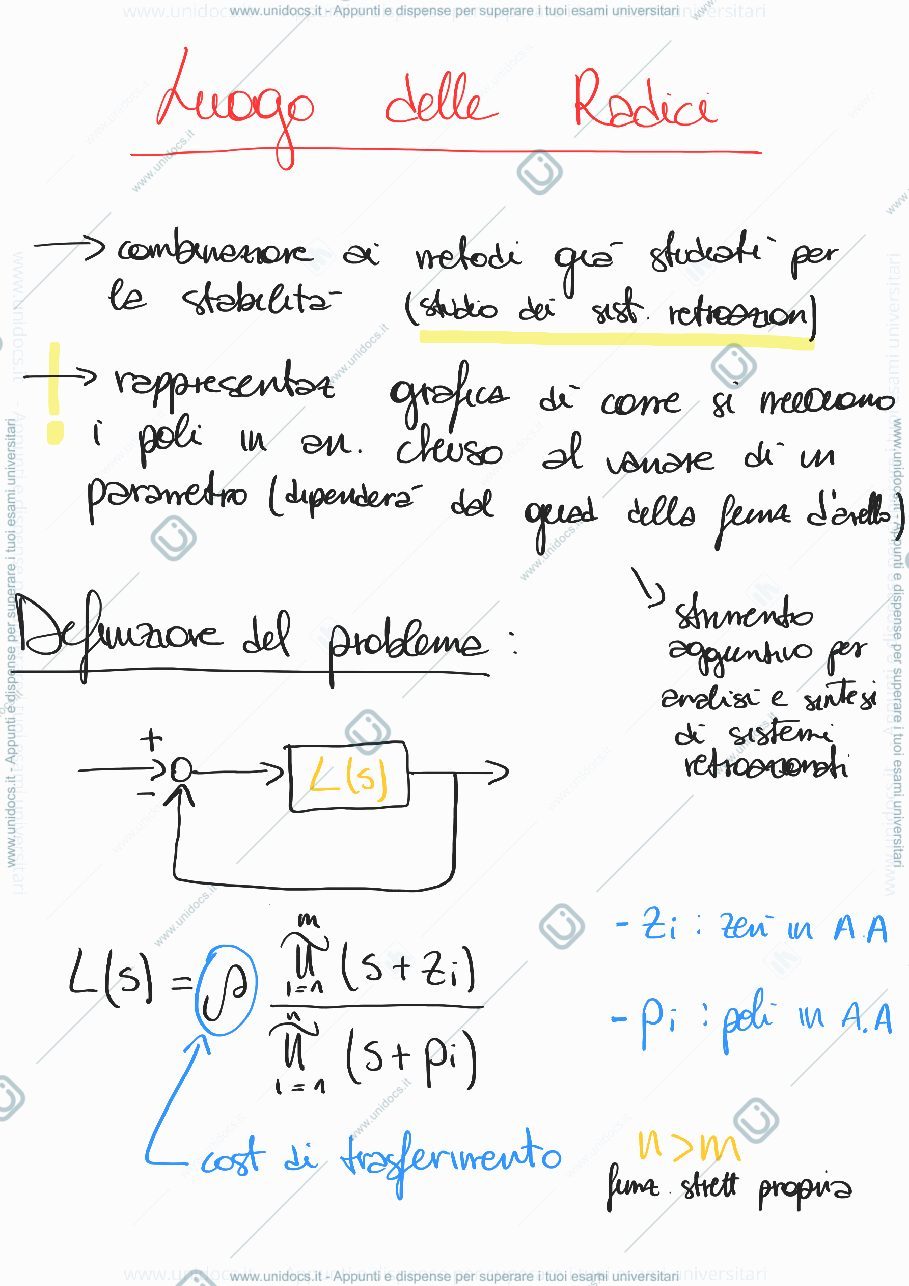 www.unidocs.it - Appunti e dispense per superare i tuoi esami universitari
Luogo delle Radici
→ combinazione ai metodi già studiati per
la stabilità (studio dei sist. retroazion)
! → rappresentaz grafica di come si muovono
i poli in an. chiuso al variare di un
parametro (dipenderà dal guad della funz d'anello)
↘ strumento
aggiuntivo per
analisi e sintesi
di sistemi
retroazionati
Definizione del problema :
+
−
L(s)
L(s) = ρ ∏_{i=1}^{m} (s + zi) / ∏_{i=1}^{n} (s + pi)
- zi : zeri in A.A
- pi : poli in A.A
cost di trasferimento
n > m
funz. strett propria
www.unidocs.it - Appunti e dispense per superare i tuoi esami universitari